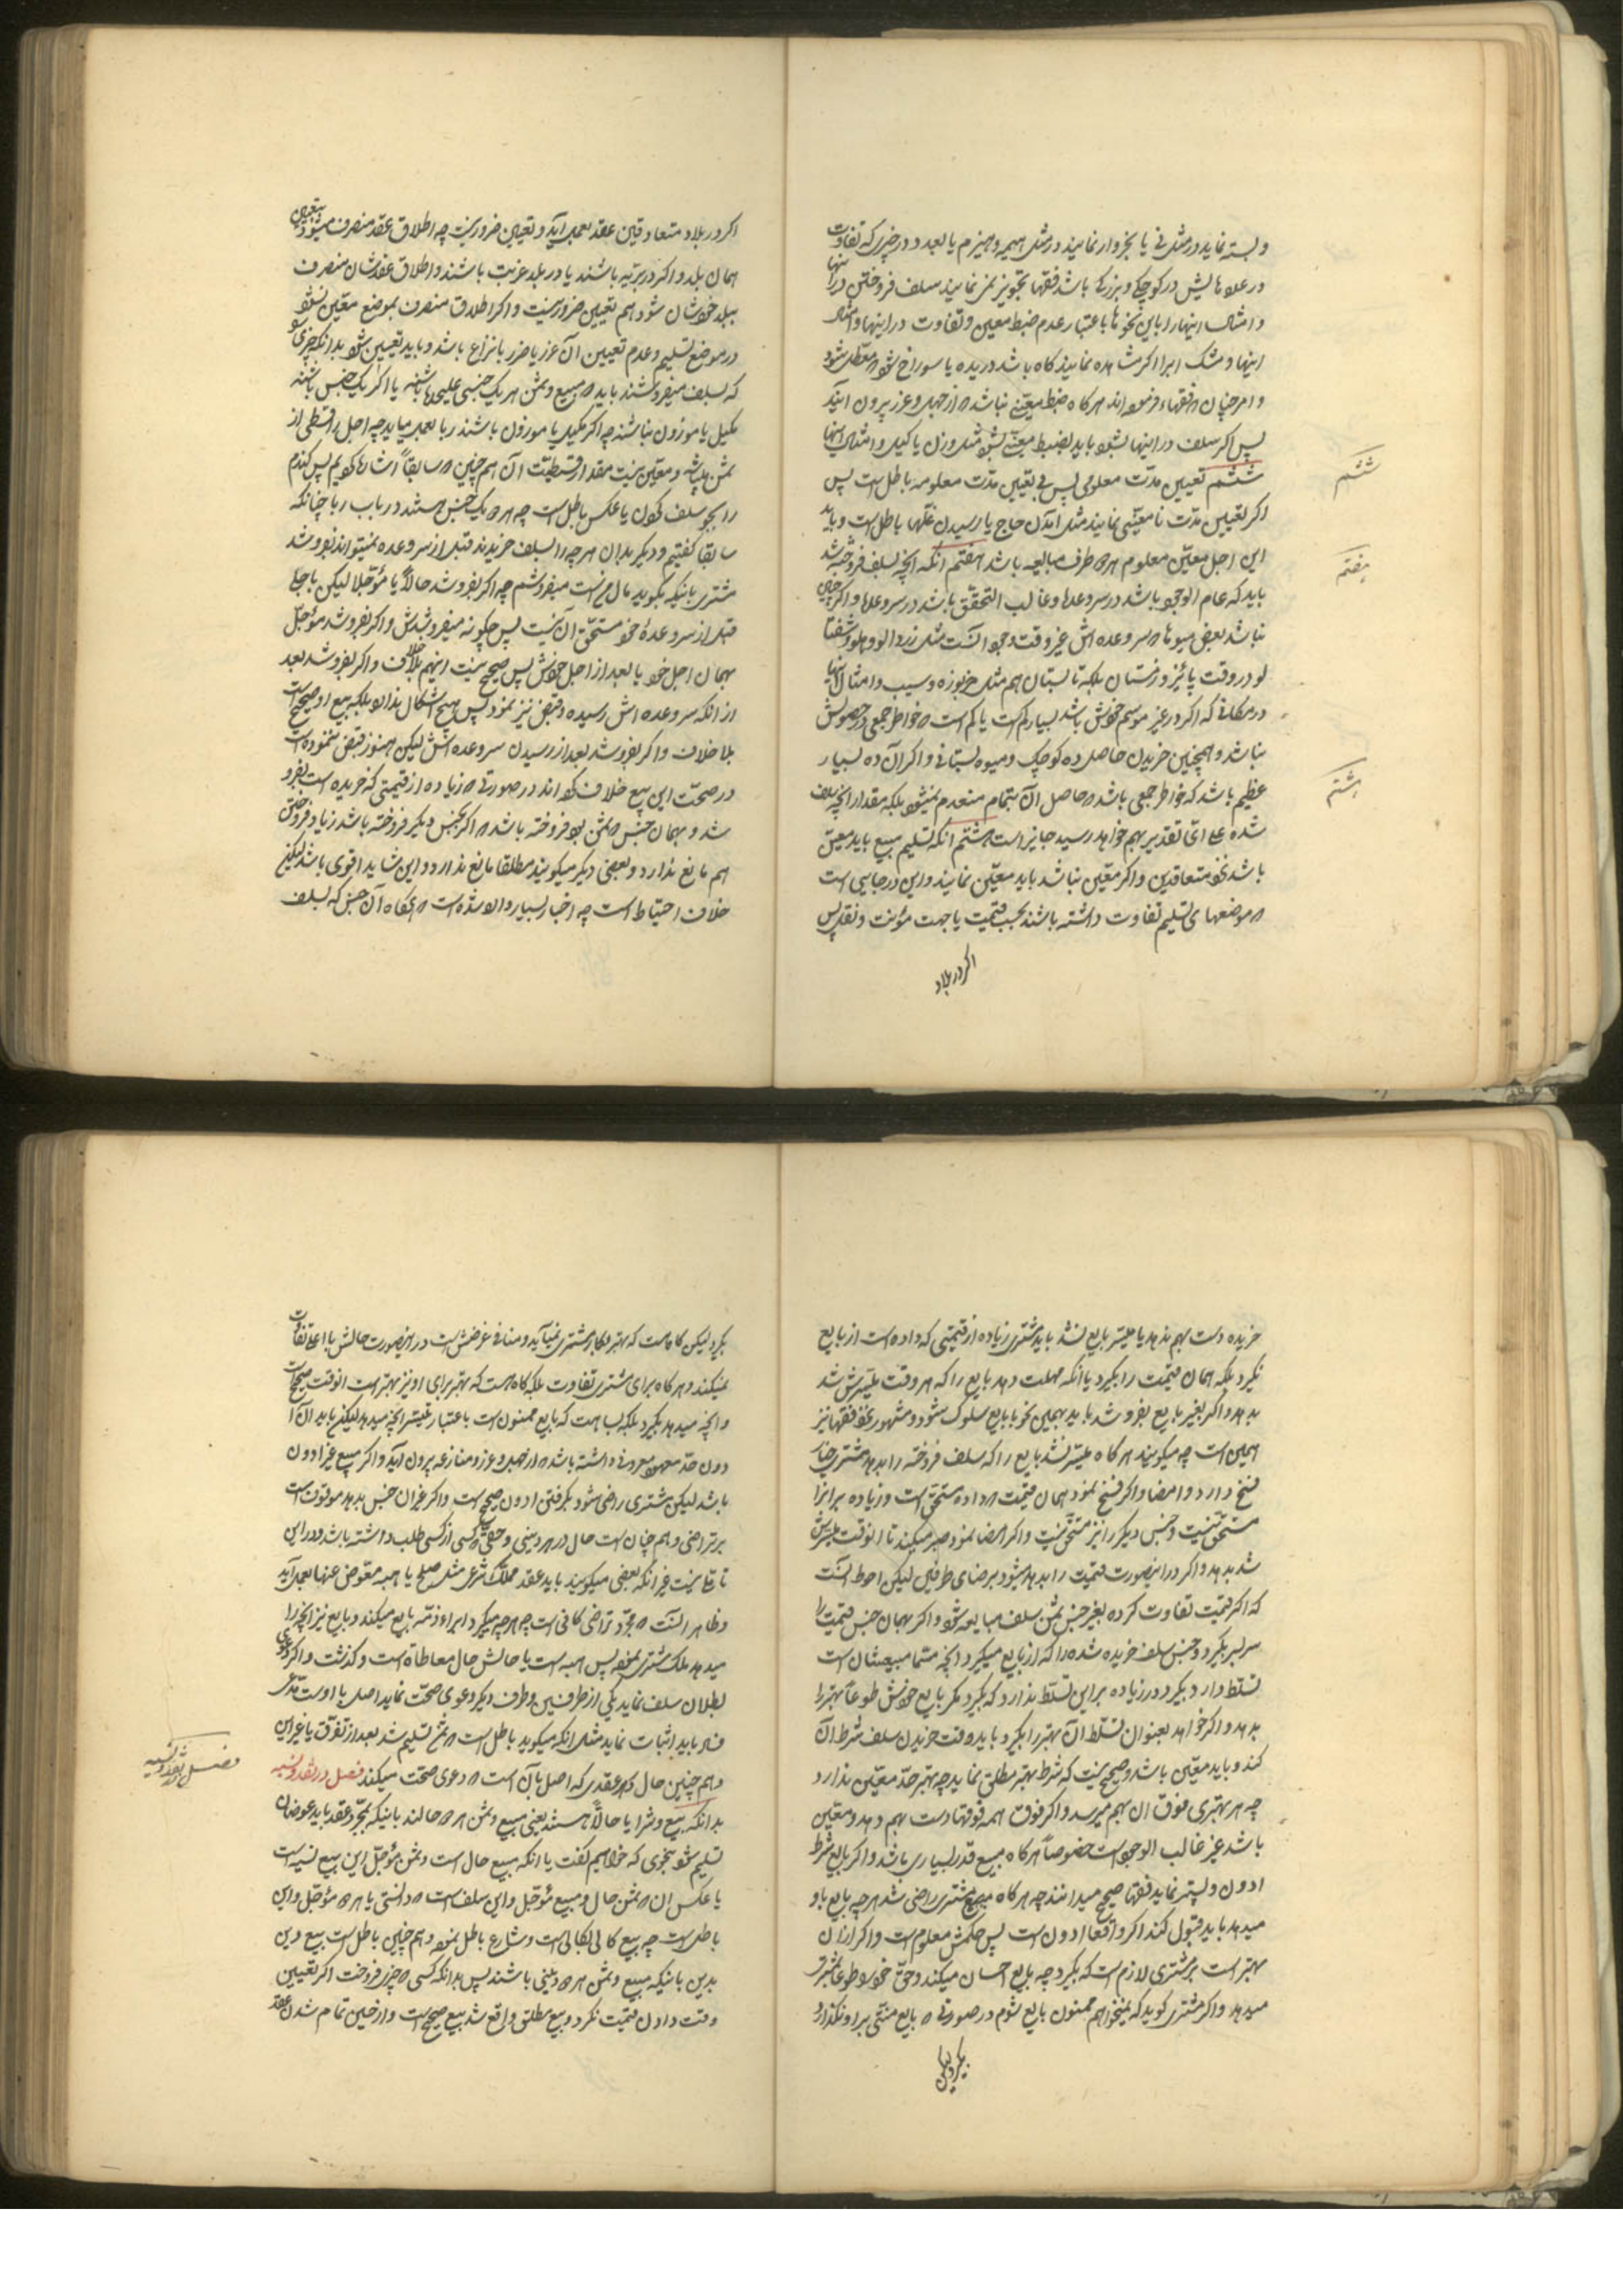 وبسته نماید در مثل نی یا بخروار نمایند در مثل هیمه و هیزم یا بعدد در چیزی که تفاوت
در علامایش در کوچکی و بزرگی باشد فقها تجویز نمی نمایند سلف فروختن در اینها
و امثال اینها را باین نحوها باعتبار عدم ضبط معین و تفاوت در اینها و امثال
اینها و مشک ابرا اگر مشاهده نمایند گاه باشد دریده یا سوراخ شود معطل شود
و امر چنان فقهاء فرموده اند هر گاه ضبط معینی نباشد از جهل و غرر بیرون آیند
پس اگر سلف در اینها بشود باید بضبط معینی بشود مثل وزن یا کیل و امثال اینها
ششم تعیین مدت معلومی پس بی تعیین مدت معلومه باطل است پس
اگر تعیین مدت نامعینی نمایند مثل آمدن حاج یا رسیدن غلها باطل است و باید
این اجل معین معلوم هر دو طرف مبایعه باشد هفتم آنکه آنچه بسلف فروخته شد
باید که عام الوجود باشد در سر وعدها و غالب التحقق باشد در سر وعدها و اگر چنین
نباشد بعض میوها که سر وعده اش غیر وقت وجود آنست مثل زردالو و هلو و شفتا
لو در وقت پائیز و زمستان بلکه تابستان هم مثل خربوزه و سیب و امثال اینها
در مکانی که اگر در غیر موسم خودش باشد بسیار کم است یا کم است که خواطر جمعی در حصولش
نباشد و همچنین خریدن حاصل ده کوچک و میوه بستانی و اگر آن ده بسیار
عظیم باشد که خواطر جمعی باشد که حاصل آن بتمام منعدم نمیشود بلکه مقدار آنچه سلف
شده علی ای تقدیر بهم خواهد رسید جایز است هشتم آنکه تسلیم مبیع باید معین
باشد نحو متعاقدین و اگر معین نباشد باید معین نمایند و این در جایی است
که موضعهای تسلیم تفاوت داشته باشند بحسب قیمت یا جهت مؤنت و نقد پس
اگر در بلاد
ششم
هفتم
هشتم
اگر در بلاد متعاقدین عقد بعمل آید و تعیین ضرور نیست چه اطلاق عقد منصرف میشود بتعیین
همان بلد و اگر در بریه باشند یا در بلد غربت باشند و اطلاق عقدشان منصرف
ببلد خودشان شود هم تعیین ضرور نیست و اگر اطلاق منصرف بموضع معین نشود
در موضع تسلیم و عدم تعیین آن غرر یا ضرر یا نزاع باشد و باید تعیین شود بدانکه چیزی
که بسلف میفروشند باید که مبیع و ثمن هر یک جنسی علیحده باشند یا اگر یک جنس باشند
مکیل یا موزون نباشند چه اگر مکیل یا موزون باشند ربا بعمل میاید چه اجل را قسطی از
ثمن میباشد و معین نیست مقدار قسطیت آن هم چنین که سابقاً اشاره کردیم پس گندم
را بجو سلف کردن یا عکس باطل است چه هر دو یک جنس هستند در باب ربا چنانکه
سابقا گفتیم و دیگر بدان هر چه را بسلف خریدند قبل از سر وعده نمیتواند بفروشد
مشتری باینکه بگوید مال من است میفروشم چه اگر بفروشد حالاً یا مؤجلا لیکن باجل
قبل از سر وعدۀ خود مستحق آن نیست پس چگونه میفروشدش و اگر بفروشد مؤجل
بهمان اجل خود یا بعد از اجل خودش پس صحیح نیست اینهم بلا خلاف و اگر بفروشد بعد
از انکه سر وعده اش رسیده و قبض نیز نمود پس هیچ اشکال ندارد بلکه بیع او صحیح است
بلا خلاف و اگر بفروشد بعد از رسیدن سر وعده اش لیکن هنوز قبض ننموده است
در صحت این بیع خلاف کرده اند در صورتی که زیاده از قیمتی که خریده است بفرو
شد و بهمان جنس که ثمن بود فروخته باشد که اگر بجنس دیگر فروخته باشد زیاد فروختن
هم مانع ندارد و بعضی دیگر میگویند مطلقا مانع ندارد و این شاید اقوی باشد لیکن
خلاف احتیاط است چه اخبار بسیار وارد شده است که هر گاه آن جنس که بسلف
خریده دست بهم نده یا میسر بایع نشد باید مشتری زیاده از قیمتی که داده است از بایع
نگیرد بلکه همان قیمت را بگیرد یا انکه مهلت دهد بایع را که هر وقت میسرش شد
بدهد و اگر بغیر بایع بفروشد باید بهمین نحو با بایع سلوک شود و مشهور نحو فقها نیز
همین است چه میگویند هر گاه میسر نشد بایع را که سلف فروخته را بدهد مشتری خیار
فسخ دارد و امضا و اگر فسخ نمود همان قیمت که داده مستحق است و زیاده بر انرا
مستحق نیست و جنس دیگر را نیز مستحق نیست و اگر امضا نمود صبر میکند تا انوقت میسرش
شد بدهد و اگر در اینصورت قیمت را بدهد میشود برضای طرفین لیکن احوط آنست
که اگر قیمت تفاوت کرده بغیر جنس ثمن سلف مبایعه شود و اگر بهمان جنس قیمت را
سربسر بگیرد و جنس سلف خریده شده را که از بایع میگیرد انچه مسما مبیعشان است
تسلط دارد بگیرد و زیاده بر این تسلط ندارد که بگیرد مگر بایع خودش طوعاً بهتر را
بدهد و اگر خواهد بعنوان تسلط آن بهتر را بگیرد باید وقت خریدن سلف شرط آن
کند و باید معین باشد و صحیح نیست که شرط بهتر مطلق نماید چه بهتر حد معین ندارد
چه هر بهتری فوق آن بهم میرسد و اگر فوق همه فوقها دست بهم دهد و معین
باشد غیر غالب الوجود است خصوصاً هر گاه مبیع قدر بسیاری باشد و اگر بایع شرط
ادون و پستر نماید فقها صحیح میدانند چه هر گاه مبیع مشتری راضی شد هر چه بایع باو
میدهد باید قبول کند اگر واقعا ادون است پس حکمش معلوم است و اگر از ان
بهتر است بر مشتری لازم است که بگیرد چه بایع احسان میکند و حق خود را طوعا بمشتری
میدهد و اگر مشتری گوید که نمیخواهم ممنون بایع شوم در صورتی که بایع منتی بر او نگذارد
بگیرد لیکن
بگیرد لیکن گاه است که بهتر بکار مشتری نمیآید و منافی غرضش است در اینصورت حالش با اعلی تفاوت
نمیکند و هر گاه برای مشتری تفاوت بلکه گاه هست که بهتر برای او نیز بهتر است انوقت صحیح است
و انچه میدهد بگیرد بلکه بسا هست که بایع ممنون است باعتبار میسر انچه میدهد لیکن باید آن
دون حد معهود معروفی داشته باشد که از جهل و غرر و منازعه بیرون آید و اگر مبیع غیر ادون
باشد لیکن مشتری راضی شود بگرفتن ادون صحیح است و اگر غیر ان جنس بدهد موقوف است
بر تراضی و هم چنان است حال در هر دینی و حقی که کسی از کسی طلب داشته باشد و در این
تاملی نیست غیر انکه بعضی میگویند باید عقد مملک شرعی مثل صلح یا هبه معوض عنها بعمل آید
و ظاهر آنست که مجرد تراضی کافی است چه هر چه میگیرد ابراء ذمه بایع میکند و بایع نیز انچه را
میدهد ملک مشتری نموده پس هبه است یا حالش حال معاطاة است و گذشت و اگر دعوی
بطلان سلف نماید یکی از طرفین و طرف دیگر دعوی صحت نماید اصل با اوست مدعی
فساد باید اثبات نماید مثل انکه میگوید باطل است که ثمن تسلیم شد بعد از تفرق یا غیر این
و هم چنین حال هر عقدی که اصل با آن است که دعوی صحت میکند فصل در نقد و نسیه
بدانکه بیع و شرا یا حالّاً هستند یعنی مبیع و ثمن هر دو حالند باینکه بمجرد عقد باید عوضان
تسلیم شود بنحوی که خواهیم گفت یا انکه مبیع حال است و ثمن مؤجل این بیع نسیه است
یا عکس ان که ثمن حال و مبیع مؤجل و این سلف است که دانستی یا هر دو مؤجل و این
باطل است چه بیع کالی بکالی است و شارع باطل نموده و هم چنین باطل است بیع دین
بدین باینکه مبیع و ثمن هر دو دینی باشند پس بدانکه کسی که چیزی فروخت اگر تعیین
وقت دادن قیمت نکرد و بیع مطلق واقع شد بیع صحیح است و از حین تمام شدن عقد
فصل در نقد و نسیه